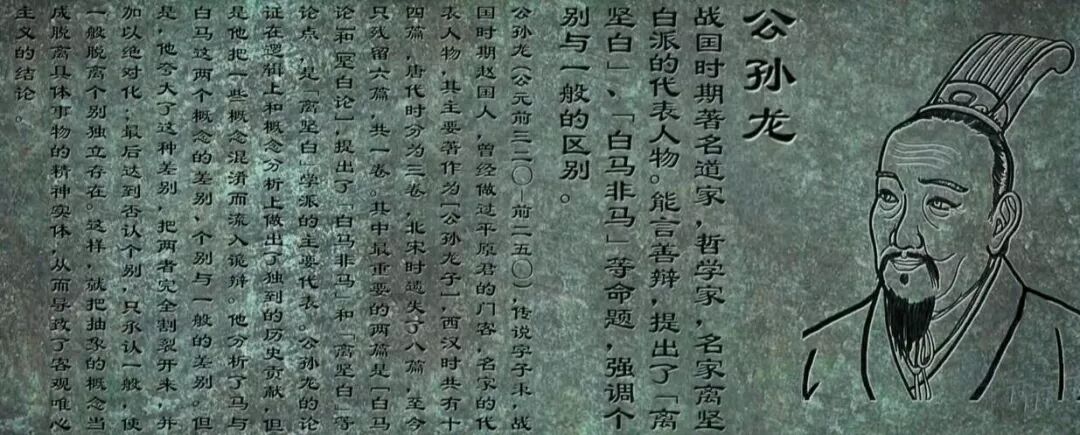 公孙龙
战国时期著名道家,哲学家,名家离坚
白派的代表人物。能言善辩,提出了「离
坚白」、「白马非马」等命题,强调个
别与一般的区别。
公孙龙(公元前三二〇-前二五〇),传说字子秉,战
国时期赵国人,曾经做过平原君的门客,名家的代
表人物,其主要著作为[公孙龙子],西汉时共有十
四篇,唐代时分为三卷,北宋时遗失了八篇,至今
只残留六篇,共一卷。其中最重要的两篇是「白马
论」和「坚白论」,提出了「白马非马」和「离坚白」等
论点,是「离坚白」学派的主要代表。公孙龙的论
证在逻辑上和概念分析上做出了独到的历史贡献,但
是他把一些概念混淆而流入诡辩。他分析了马与
白马这两个概念的差别,个别与一般的差别。但
是,他夸大了这种差别,把两者完全割裂开来,并
加以绝对化;最后达到否认个别,只承认一般,使
一般脱离个别独立存在。这样,就把抽象的概念当
成脱离具体事物的精神实体,从而导致了客观唯心
主义的结论。